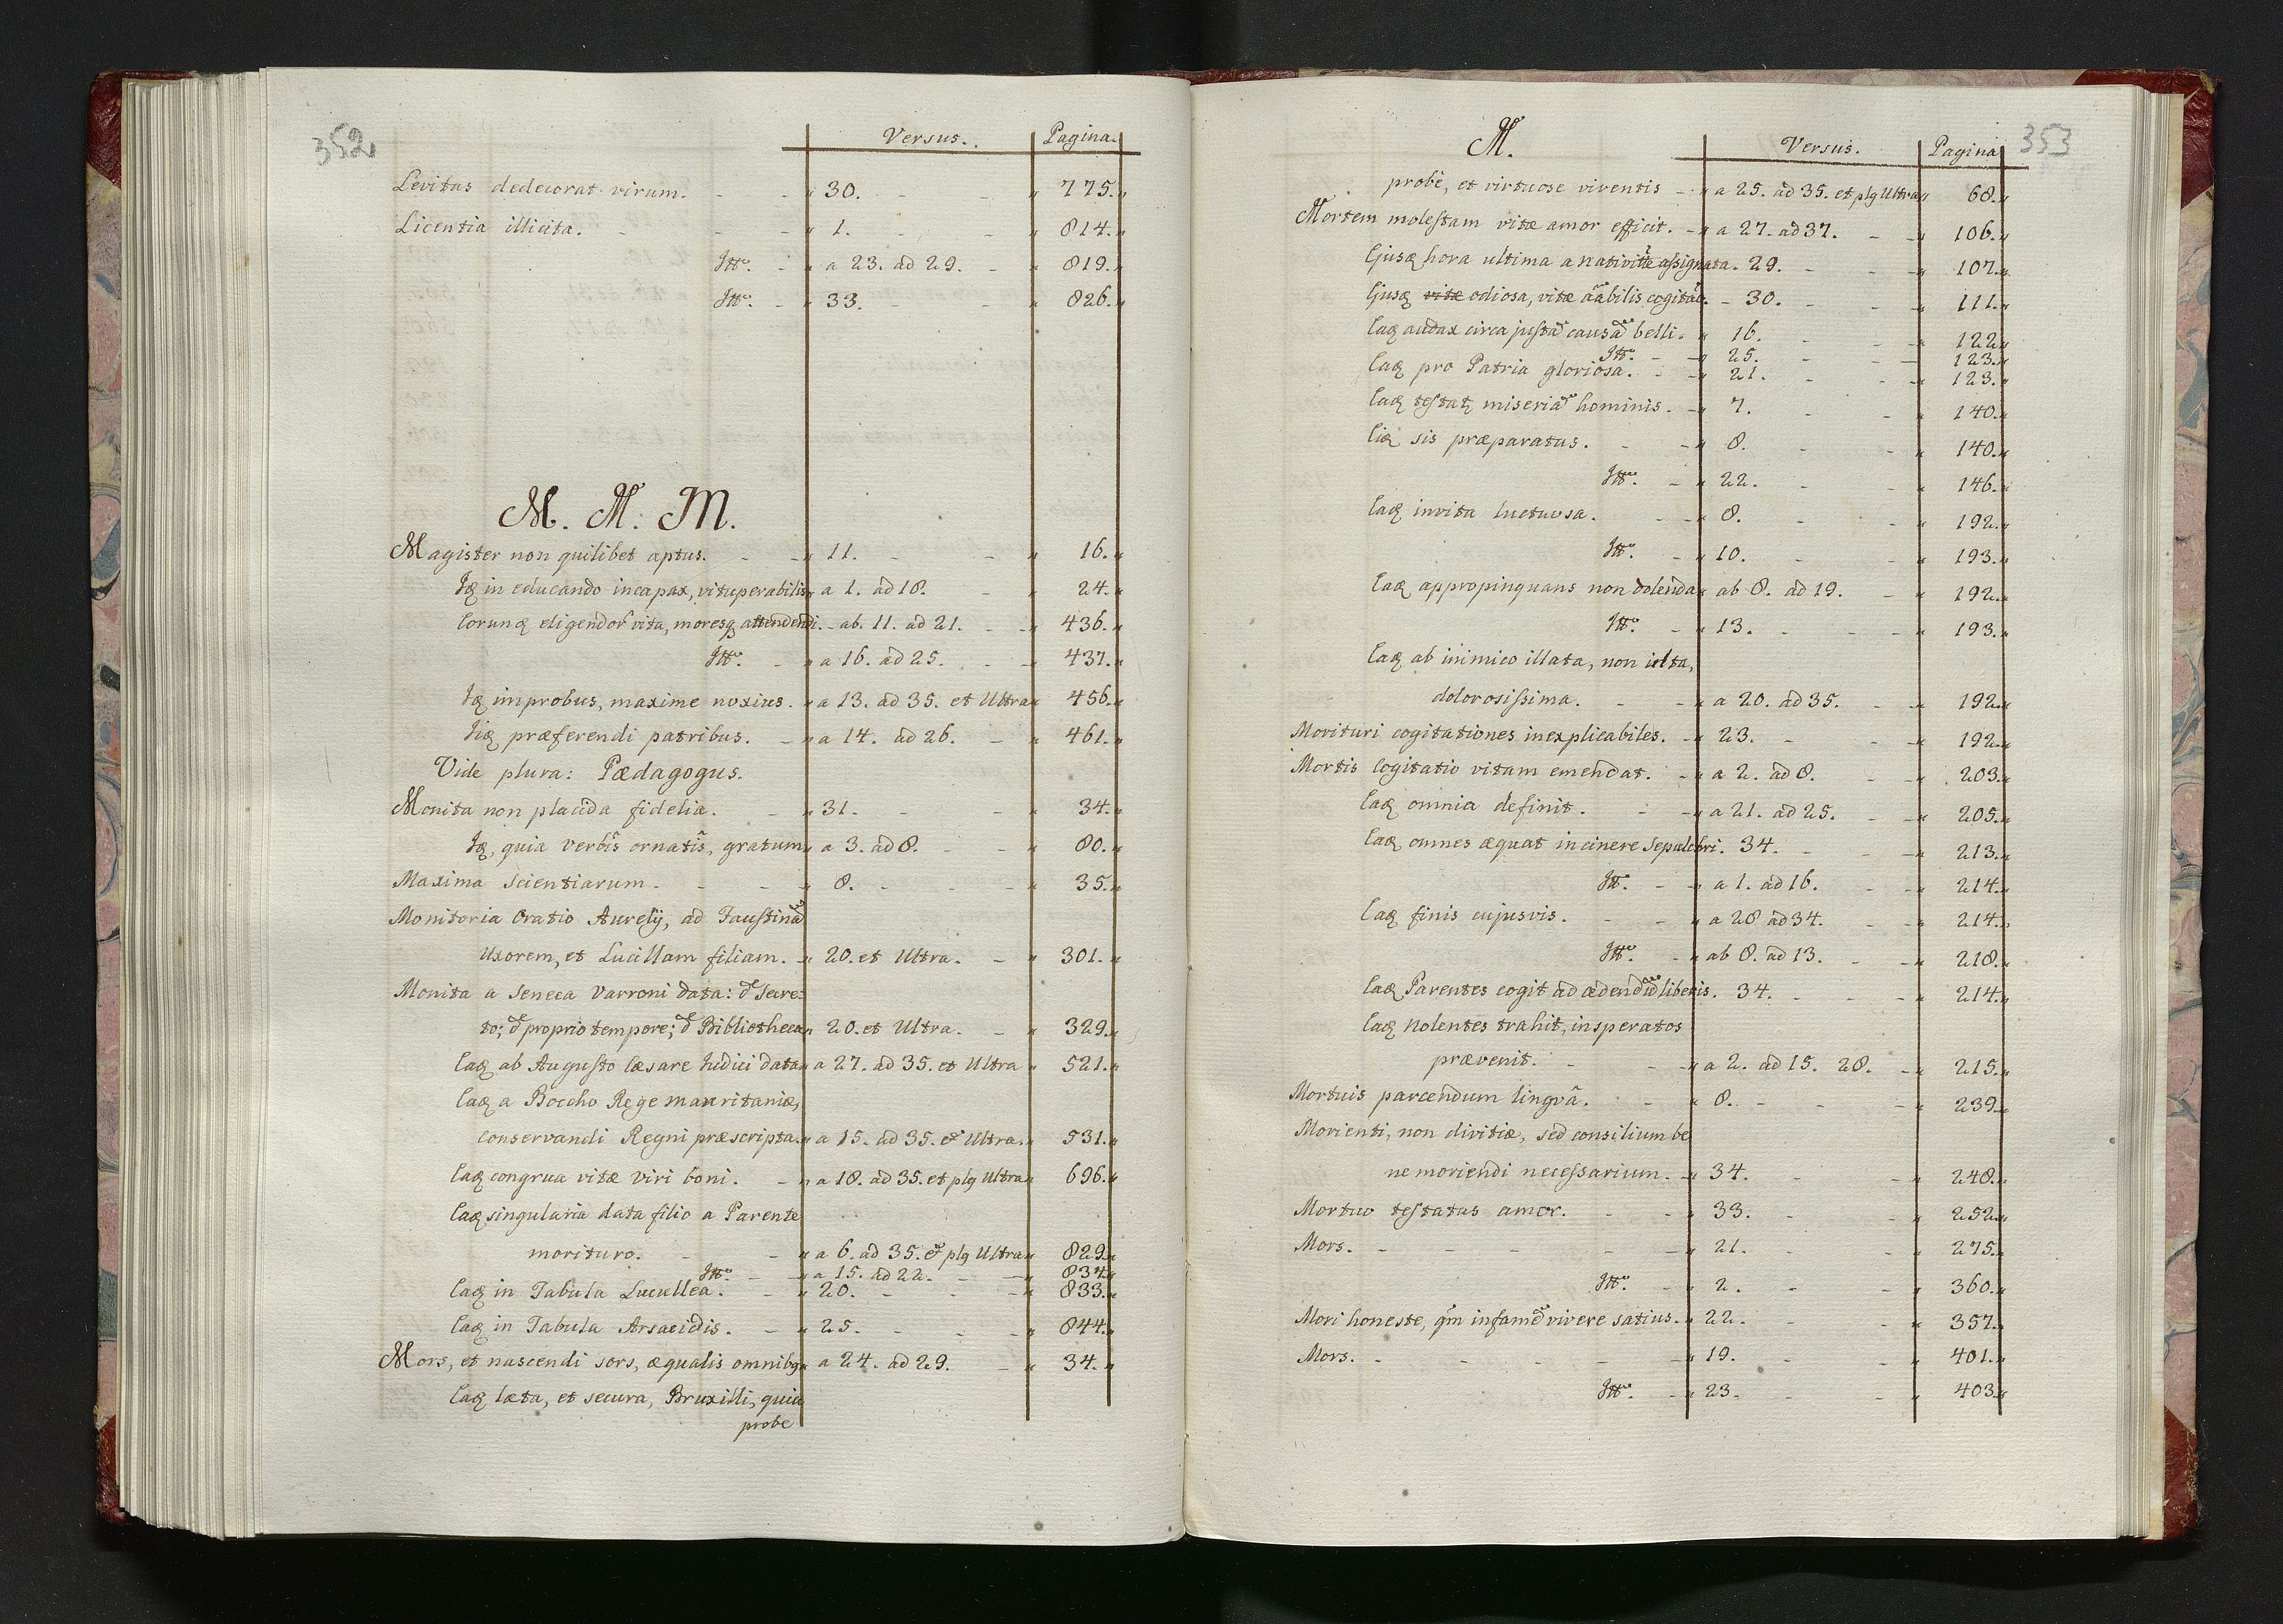 352
Versus. Pagina.
Levitas dedecorat virum. - - „ 30. - - „ 775. „
Licentia illicita. - - - „ 1. - - „ 814. „
Itto. - „ a 23. ad 29. - „ 819. „
Itto. - „ 33. - - „ 826. „
M. M. M.
Magister non quilibet aptus. - - „ 11. - - „ 16. „
Iq in educando incapax, vituperabilis „ a 1. ad 18. - „ 24. „
Eorunq eligendor vita, moresq attendendi. - ab. 11. ad 21. - - „ 436. „
Itto. - „ a 16. ad 25. - - „ 437. „
Iq improbus, maxime noxius. - „ a 13. ad 35. et Ultra „ 456. „
Iiq præferendi patribus. - „ a 14. ad 26. - „ 461. „
Vide plura: Pædagogus.
Monita non placida fidelia. - „ 31. - - „ 34. „
Iq, quia verbis ornatis, gratum „ a 3. ad 8. - - „ 80. „
Maxima scientiarum. - - - „ 8. - - - „ 35. „
Monitoria Oratio Aurelij, ad Faustinã
Uxorem, et Lucillam filiam. - „ 20. et Ultra. - „ 301. „
Monita a Seneca Varroni data: de Secre:
to; de proprio tempore; de Bibliotheca „ 20. et Ultra. - „ 329. „
Eaq ab Augusto Cæsare Iudici data „ a 27. ad 35. et Ultra „ 521. „
Eaq a Boccho Rege Mauritaniæ,
conservandi Regni præscripta. „ a 15. ad 35. et Ultra. „ 531. „
Eaq congrua vitæ viri boni. - „ a 18. ad 35. et plq Ultra „ 696. „
Eaq singularia data filio a Parente
morituro. - - „ a 6. ad 35. et plq Ultra „ 829. „
Itto. - „ a 15. ad 22. - - „ 834. „
Eaq in Tabula Lucullea. - „ 20. - - - „ 833. „
Eaq in Tabula Arsacidis. - „ 25. - - - „ 844. „
Mors, et nascendi sors, æqualis omnibq „ a 24. ad 29. - „ 34. „
Eaq læta, et secura, Bruxilli, quia
probe
353
M. Versus. Pagina
probè, et virtuose viventis - „ a 25. ad 35. et plq Ultra „ 68. „
Mortem molestam vitæ amor efficit. - „ a 27. ad 37. - - „ 106. „
Ejusq hora ultima a nativitte assignata. 29. - - „ 107. „
Ejusq vitæ odiosa, vitæ aãbilis cogitãõ. - 30. - - „ 111. „
Eaq audax circa justã causã belli. „ 16. - - „ 122 „
Itto. - „ 25. - - „ 123. „
Eaq pro Patria gloriosa. - „ 21. - - „ 123. „
Eaq testatq miseriã hominis. - „ 7. - - „ 140. „
Eiq sis præparatus. - - „ 8. - - „ 140. „
Itto. - „ 22. - - „ 146. „
Eaq invita luctuosa. - - „ 8. - - „ 192. „
Itto. - „ 10. - - „ 193. „
Eaq appropinquans non dolenda „ ab 8. ad 19. - „ 192. „
Itto. - „ 13. - - - „ 193. „
Eaq ab inimico illata, non ulta,
dolorosissima. - - „ a 20. ad 35. - - „ 192. „
Morituri cogitationes inexplicabiles. - „ 23. - - - „ 192. „
Mortis cogitatio vitam emendat. - „ a 2. ad 8. - - „ 203. „
Eaq omnia definit. - - „ a 21. ad 25. - - „ 205. „
Eaq omnes æquat in cinere Sepulchri. 34. - - - „ 213. „
Itto. - „ a 1. ad 16. - - „ 214. „
Eaq finis cujusvis. - - „ a 28 ad 34. - - „ 214. „
Itto. - „ ab 8. ad 13. - - „ 218. „
Eaq Parentes cogit ad edendũ liberis. 34. - - - „ 214. „
Eaq nolentes trahit, insperatos
prævenit. - - „ a 2. ad 15. 28. - „ 215. „
Mortuis parcendum linguâ. - - „ 8. - - - „ 239. „
Morienti, non divitiæ, sed consilium be
ne moriendi necessarium. - „ 34. - - „ 248. „
Mortuo testatus amor. - - „ 33. - - „ 252. „
Mors. - - - - - „ 21. - - „ 275. „
Itto. - „ 2. - - „ 360. „
Mori honeste, qm infamẽ vivere satius. „ 22. - - „ 357. „
Mors. - - - - - „ 19. - - „ 401. „
Itto. - „ 23. - - „ 403. „